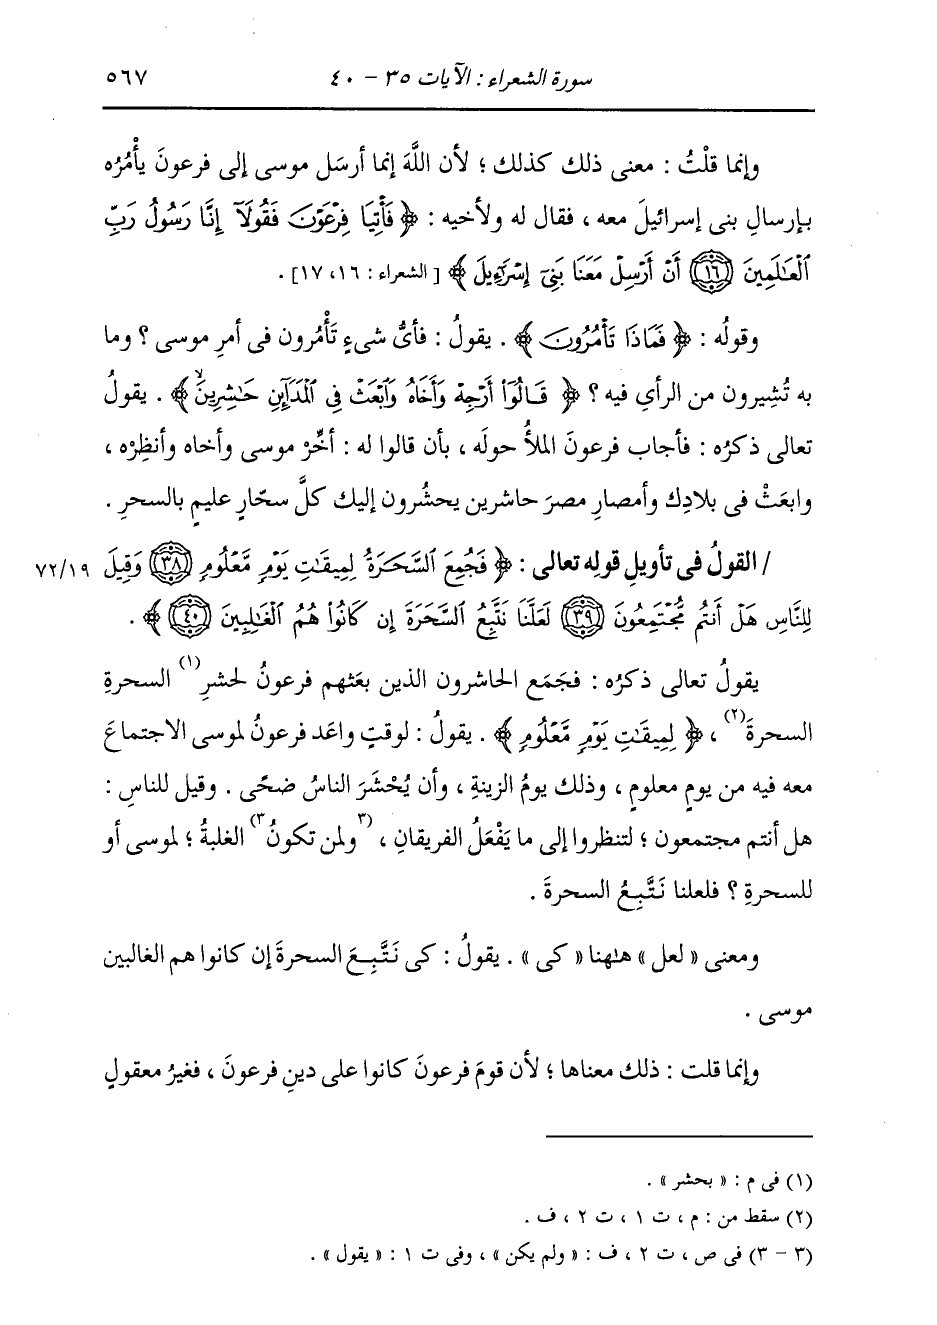 سورة الشعراء : الآيات ٣٥ - ٤٠ ٥٦٧
وإنما قلْتُ : معنى ذلك كذلك ؛ لأن اللَّهَ إنما أرسَل موسى إلى فرعونَ يأْمُرُه
بإرسالِ بنى إسرائيلَ معه ، فقال له ولأخيه : ﴿ فَأْتِيَا فِرْعَوْنَ فَقُولَآ إِنَّا رَسُولُ رَبِّ
ٱلْعَـٰلَمِينَ (١٦) أَنْ أَرْسِلْ مَعَنَا بَنِىٓ إِسْرَٰٓءِيلَ ﴾ [ الشعراء : ١٦، ١٧] .
وقولُه : ﴿ فَمَاذَا تَأْمُرُونَ ﴾ . يقولُ : فأىُّ شىءٍ تَأْمُرون فى أمرِ موسى ؟ وما
به تُشِيرون من الرأىِ فيه ؟ ﴿ قَالُوٓا۟ أَرْجِهْ وَأَخَاهُ وَٱبْعَثْ فِى ٱلْمَدَآئِنِ حَـٰشِرِينَ ﴾ . يقولُ
تعالى ذكرُه : فأجاب فرعونَ الملأُ حولَه ، بأن قالوا له : أخِّرْ موسى وأخاه وأنظِرْه ،
وابعَثْ فى بلادِك وأمصارِ مصرَ حاشرين يحشُرون إليك كلَّ سحّارٍ عليمٍ بالسحرِ .
/ القولُ فى تأويلِ قولِه تعالى : ﴿ فَجُمِعَ ٱلسَّحَرَةُ لِمِيقَـٰتِ يَوْمٍ مَّعْلُومٍ (٣٨) وَقِيلَ ٧٢/١٩
لِلنَّاسِ هَلْ أَنتُم مُّجْتَمِعُونَ (٣٩) لَعَلَّنَا نَتَّبِعُ ٱلسَّحَرَةَ إِن كَانُوا۟ هُمُ ٱلْغَـٰلِبِينَ (٤٠) ﴾ .
يقولُ تعالى ذكرُه : فجَمَع الحاشرون الذين بعَثهم فرعونُ لحشرِ(١) السحرةِ
السحرةَ(٢) ، ﴿ لِمِيقَـٰتِ يَوْمٍ مَّعْلُومٍ ﴾ . يقولُ : لوقتٍ واعَد فرعونُ لموسى الاجتماعَ
معه فيه من يومٍ معلومٍ ، وذلك يومُ الزينةِ ، وأن يُحْشَرَ الناسُ ضحًى . وقيل للناسِ :
هل أنتم مجتمعون ؛ لتنظروا إلى ما يَفْعَلُ الفريقانِ ، (٣ولمن تكونُ٣) الغلبةُ ؛ لموسى أو
للسحرةِ ؟ فلعلنا نَتَّبِعُ السحرةَ .
ومعنى « لعل » هلهنا « كى » . يقولُ : كى نَتَّبِعَ السحرةَ إن كانوا هم الغالبين
موسى .
وإنما قلت : ذلك معناها ؛ لأن قومَ فرعونَ كانوا على دينِ فرعونَ ، فغيرُ معقولٍ
(١) فى م : « بحشر » .
(٢) سقط من : م ، ت ١ ، ت ٢ ، ف .
(٣ - ٣) فى ص ، ت ٢ ، ف : « ولم يكن » ، وفى ت ١ : « يقول » .